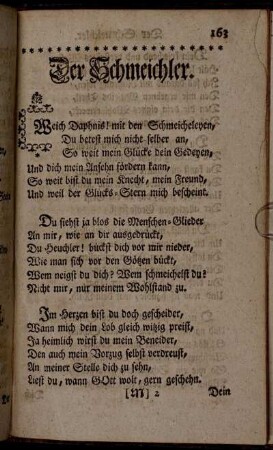 163
Der Schmeichler.
Weich Daphnis! mit den Schmeicheleyen,
Du betest mich nicht selber an,
So weit mein Glücke dein Gedeyen,
Und dich mein Ansehn fördern kann,
So weit bist du mein Knecht, mein Freund,
Und weil der Glücks-Stern mich bescheint.
Du siehst ja blos die Menschen-Glieder
An mir, wie an dir ausgedrückt,
Du Heuchler! bückst dich vor mir nieder,
Wie man sich vor den Götzen bückt,
Wem neigst du dich? Wem schmeichelst du?
Nicht mir, nur meinem Wohlstand zu.
Im Herzen bist du doch gescheider,
Wann mich dein Lob gleich witzig preist,
Ja heimlich wirst du mein Beneider,
Den auch mein Vorzug selbst verdreust,
An meiner Stelle dich zu sehn,
Liest du, wann GOtt wolt, gern geschehn.
[M] 2 Dein